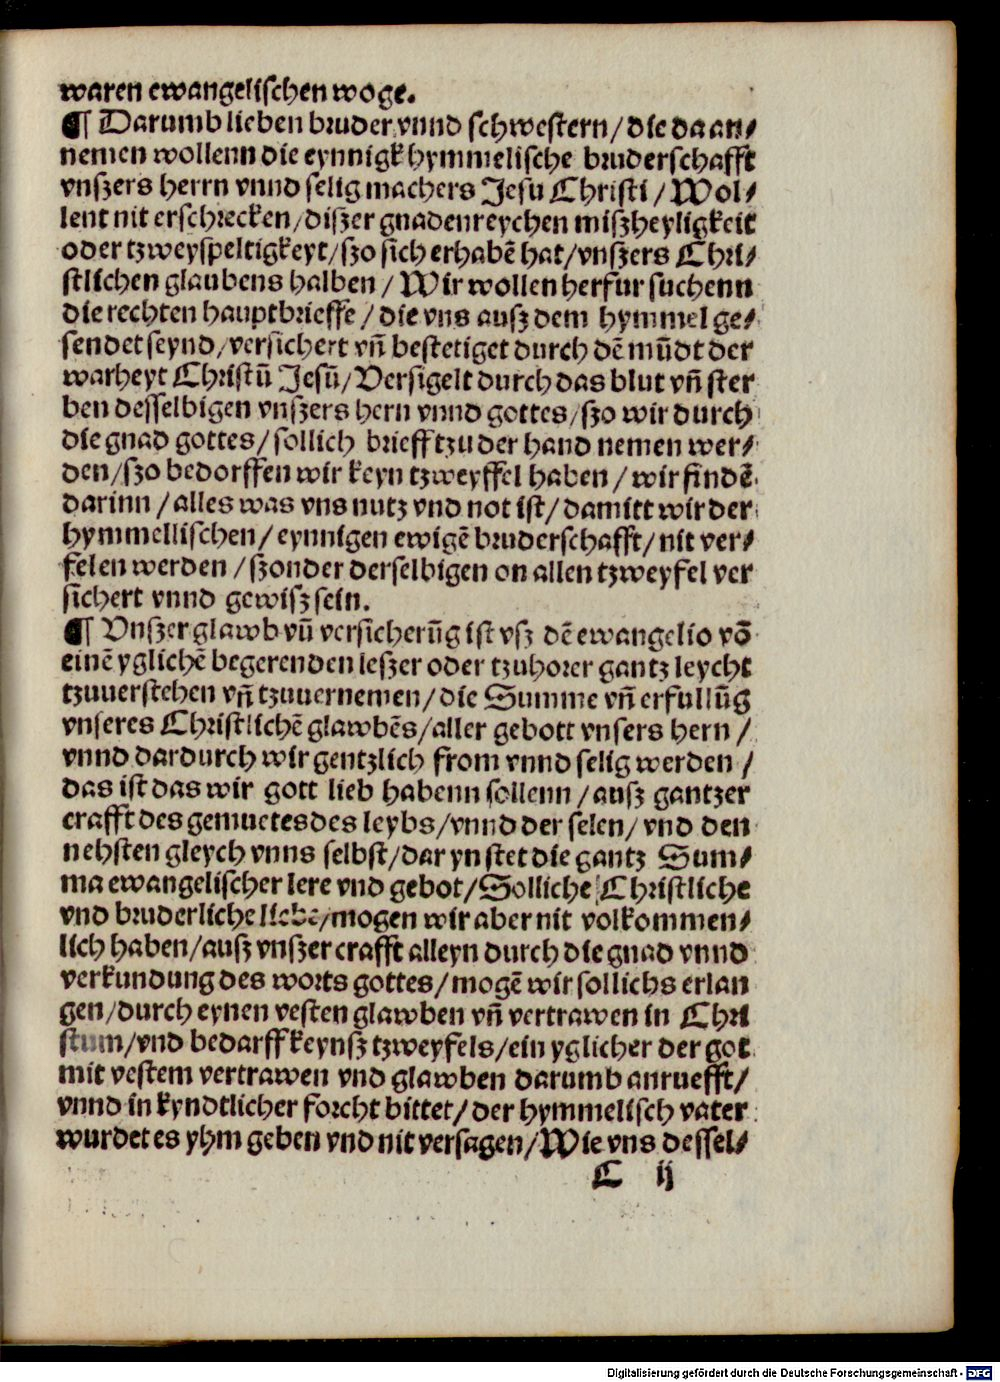 waren ewangelischen woge.
¶ Darumb lieben bruder vnnd schwestern/die da an⸗
nemen wollenn die eynnigk hymmelische bruderschafft
vnszers herrn vnnd selig machers Jesu Christi/Wol⸗
lent nit erschrecken/diszer gnadenreychen miszheyligkeit
oder tzweyspeltigkeyt/szo sich erhabē hat/vnszers Chri⸗
stlichen glaubens halben/Wir wollen herfur suchenn
die rechten hauptbrieffe/die vns ausz dem hymmel ge⸗
sendet seynd/versichert vñ bestetiget durch dē mūdt der
warheyt Christū Jesū/Versigelt durch das blut vñ ster
ben desselbigen vnszers hern vnnd gottes/szo wir durch
die gnad gottes/sollich brieff tzu der hand nemen wer⸗
den/szo bedorffen wir keyn tzweyffel haben/wir findē
darinn/alles was vns nutz vnd not ist/damitt wir der
hymmellischen/eynnigen ewigē bruderschafft/nit ver⸗
felen werden/szonder derselbigen on allen tzweyfel ver
sichert vnnd gewisz sein.
¶ Vnszer glawb vñ versicherūg ist vsz dē ewangelio vō
einē yglichē begerenden leszer oder tzuhorer gantz leycht
tzuuerstehen vñ tzuuernemen/die Summe vñ erfullūg
vnseres Christlichē glawbēs/aller gebott vnsers hern/
vnnd dardurch wir gentzlich from vnnd selig werden/
das ist das wir gott lieb habenn sollenn/ausz gantzer
crafft des gemuetes des leybs/vnnd der selen/vnd den
nehsten gleych vnns selbst/dar yn stet die gantz Sum⸗
ma ewangelischer lere vnd gebot/Solliche Christliche
vnd bruderliche liebe/mogen wir aber nit volkommen⸗
lich haben/ausz vnszer crafft alleyn durch die gnad vnnd
verkundung des worts gottes/mogē wir sollichs erlan
gen/durch eynen vesten glawben vñ vertrawen in Chri
stum/vnd bedarff keynsz tzweyfels/ein yglicher der got
mit vestem vertrawen vnd glawben darumb anruefft/
vnnd in kyndtlicher forcht bittet/der hymmelisch vater
wurdet es yhm geben vnd nit versagen/Wie vns dessel⸗
C ij
Digitalisierung gefördert durch die Deutsche Forschungsgemeinschaft - DFG